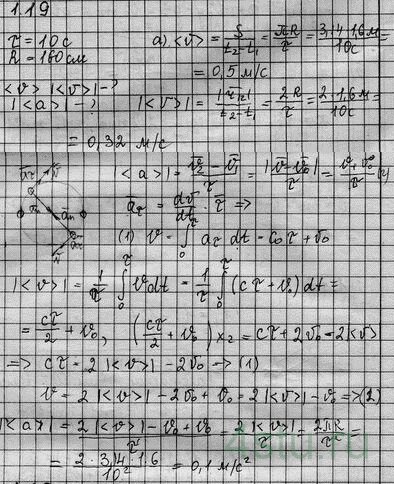 1.19
τ = 10 c
R = 160 см
<v> |<v>| - ?
|<a>| - ?
a) <v> = S/(t₂-t₁) = πR/τ = 3,14·1,6м/10c =
= 0,5 м/c
|<v>| = |r₁₂|/(t₂-t₁) = 2R/τ = 2·1,6м/10c =
= 0,32 м/c
|<a>| = (v̄₂ - v̄₁)/τ = |v̄ - v̄₀|/τ = (v + v₀)/τ
ā_τ = dv̄/dt · τ̄ =>
(1) v = ∫₀^τ a_τ dt = cτ + v₀
|<v>| = 1/τ ∫₀^τ v dt = 1/τ ∫₀^τ (cτ + v₀) dt =
= cτ/2 + v₀, (cτ/2 + v₀) x₂ = cτ + 2v₀ = 2<v>
=> cτ = 2|<v>| - 2v₀ -> (1)
v = 2|<v>| - 2v₀ + v₀ = 2|<v>| - v₀ => (2)
|<a>| = (2|<v>| - v₀ + v₀)/τ = 2|<v>|/τ = 2πR/τ² =
= 2·3,14·1,6/10² = 0,1 м/c²